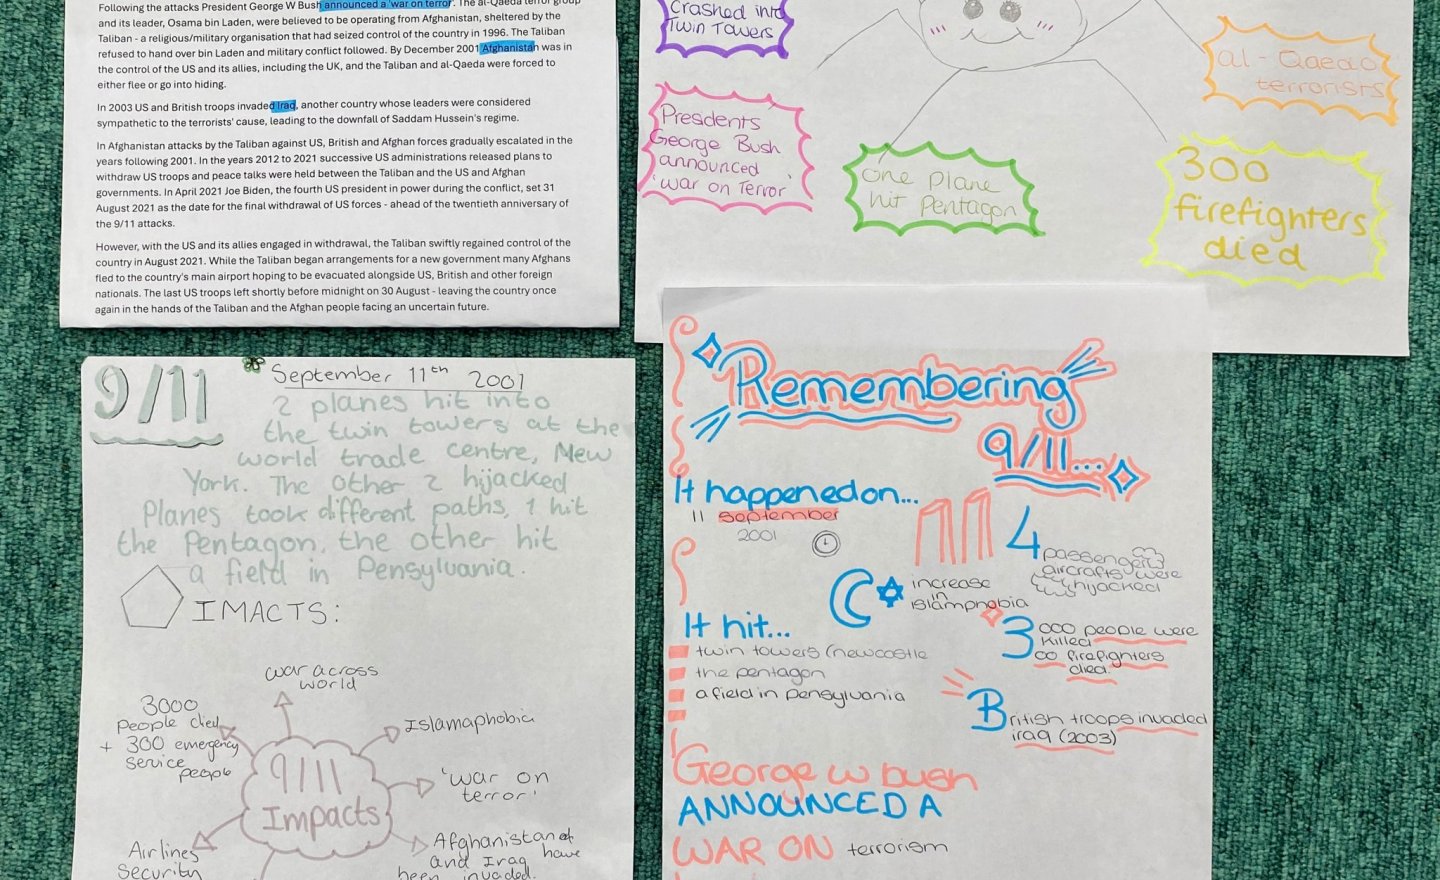 Following the attacks President George W Bush announced a 'war on terror'. The al-Qaeda terror group
and its leader, Osama bin Laden, were believed to be operating from Afghanistan, sheltered by the
Taliban - a religious/military organisation that had seized control of the country in 1996. The Taliban
refused to hand over bin Laden and military conflict followed. By December 2001 Afghanistan was in
the control of the US and its allies, including the UK, and the Taliban and al-Qaeda were forced to
either flee or go into hiding.
In 2003 US and British troops invaded Iraq, another country whose leaders were considered
sympathetic to the terrorists' cause, leading to the downfall of Saddam Hussein's regime.
In Afghanistan attacks by the Taliban against US, British and Afghan forces gradually escalated in the
years following 2001. In the years 2012 to 2021 successive US administrations released plans to
withdraw US troops and peace talks were held between the Taliban and the US and Afghan
governments. In April 2021 Joe Biden, the fourth US president in power during the conflict, set 31
August 2021 as the date for the final withdrawal of US forces - ahead of the twentieth anniversary of
the 9/11 attacks.
However, with the US and its allies engaged in withdrawal, the Taliban swiftly regained control of the
country in August 2021. While the Taliban began arrangements for a new government many Afghans
fled to the country's main airport hoping to be evacuated alongside US, British and other foreign
nationals. The last US troops left shortly before midnight on 30 August - leaving the country once
again in the hands of the Taliban and the Afghan people facing an uncertain future.
Crashed into
Twin Towers
al-Qaeda
terrorists
Presdents
George Bush
announced
'war on Terror'
one plane
hit Pentagon
300
firefighters
died
9/11
September 11th 2001
2 planes hit into
the twin towers at the
world trade centre, New
York. The other 2 hijacked
Planes took different paths, 1 hit
the Pentagon, the other hit
a field in Pensylvania.
IMACTS:
war across
world
3000
People died
+ 300 emergency
service
people
Islamaphobia
9/11
Impacts
'war on
terror'
Airlines
Security
Afghanistan
and Iraq have
been invaded.
Remembering
9/11...
It happened on...
11 september
2001
4
passenger
aircrafts were
hijacked
increase
in
islamphobia
3000 people were
killed
300 firefighters
died.
It hit...
twin towers (newcastle
the pentagon
a field in pensylvania
British troops invaded
iraq (2003)
George w bush
ANNOUNCED A
WAR ON terrorism